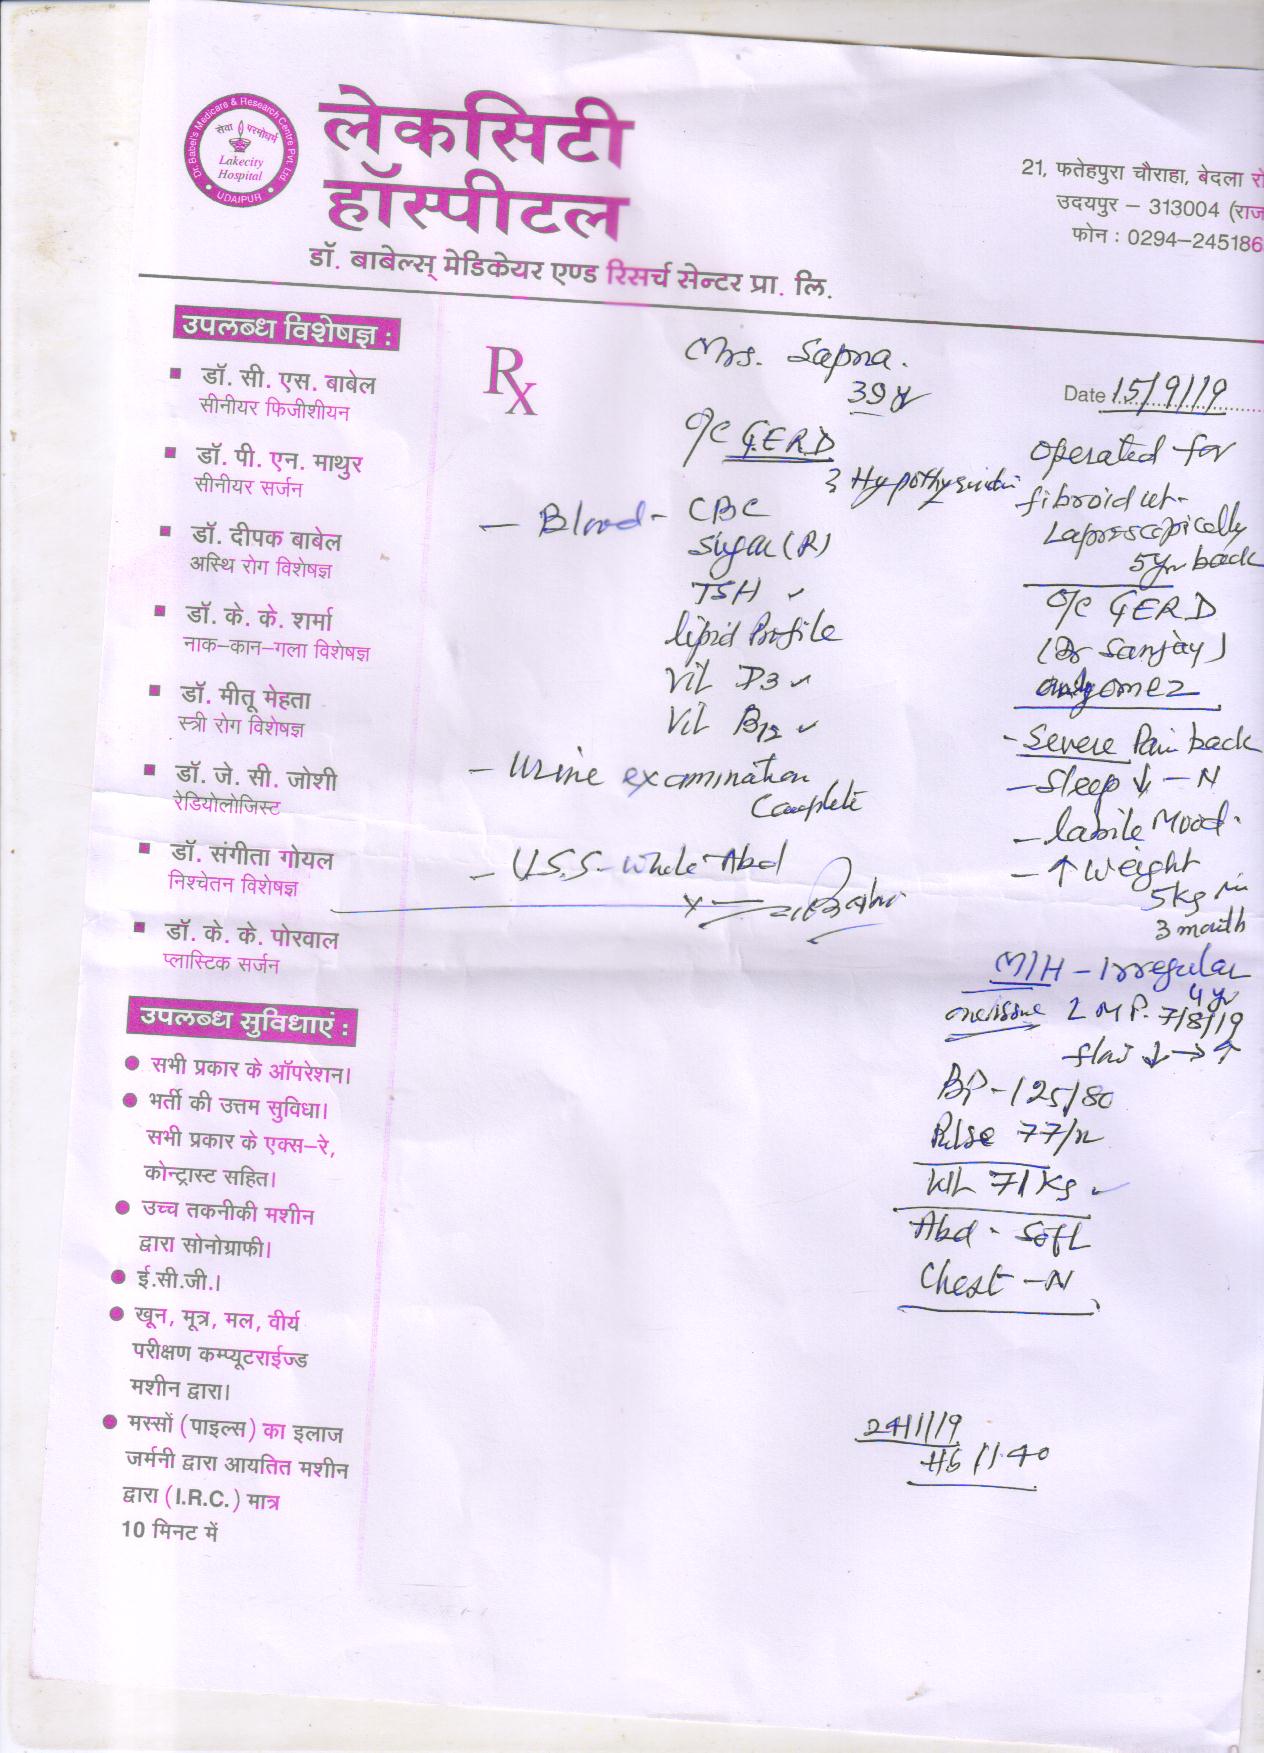 Dr. Babel's Medicare & Research Centre Pvt. Ltd
सेवा परमोधर्म
Lakecity
Hospital
UDAIPUR
लेकसिटी
हॉस्पीटल
डॉ. बाबेल्स् मेडिकेयर एण्ड रिसर्च सेन्टर प्रा. लि.
21, फतेहपुरा चौराहा, बेदला रो
उदयपुर – 313004 (राज
फोन : 0294–245186
उपलब्ध विशेषज्ञ :
डॉ. सी. एस. बाबेल
सीनीयर फिजीशीयन
डॉ. पी. एन. माथुर
सीनीयर सर्जन
डॉ. दीपक बाबेल
अस्थि रोग विशेषज्ञ
डॉ. के. के. शर्मा
नाक–कान–गला विशेषज्ञ
डॉ. मीतू मेहता
स्त्री रोग विशेषज्ञ
डॉ. जे. सी. जोशी
रेडियोलोजिस्ट
डॉ. संगीता गोयल
निश्चेतन विशेषज्ञ
डॉ. के. के. पोरवाल
प्लास्टिक सर्जन
उपलब्ध सुविधाएं :
सभी प्रकार के ऑपरेशन।
भर्ती की उत्तम सुविधा।
सभी प्रकार के एक्स–रे,
कोन्ट्रास्ट सहित।
उच्च तकनीकी मशीन
द्वारा सोनोग्राफी।
ई.सी.जी.।
खून, मूत्र, मल, वीर्य
परीक्षण कम्प्यूटराईज्ड
मशीन द्वारा।
मस्सों (पाइल्स) का इलाज
जर्मनी द्वारा आयतित मशीन
द्वारा (I.R.C.) मात्र
10 मिनट में
Rx
Mrs. Sapna.
39 y
Date 15/9/19
o/c GERD
? Hypothyroidin
- Blood - CBC
Sugar (R)
TSH ✓
lipid Profile
Vit D3 ✓
Vit B12 ✓
- Urine examination
Complete
- U.S.S - Whole Abd
Operated for
fibroid ut.
Laprescopically
5 yr back
o/c GERD
(Dr Sanjay)
omez
- Severe Pain back
- Sleep ↓ - N
- labile Mood.
- ↑ Weight
5 kg in
3 month
M/H - Irregular
4 yr
one issue LMP. 7/8/19
↓ → ↑
BP - 125/80
Pulse 77/m
Wt. 71 Kg ✓
Abd - Soft
Chest - N
24/1/19
Hb 11.40